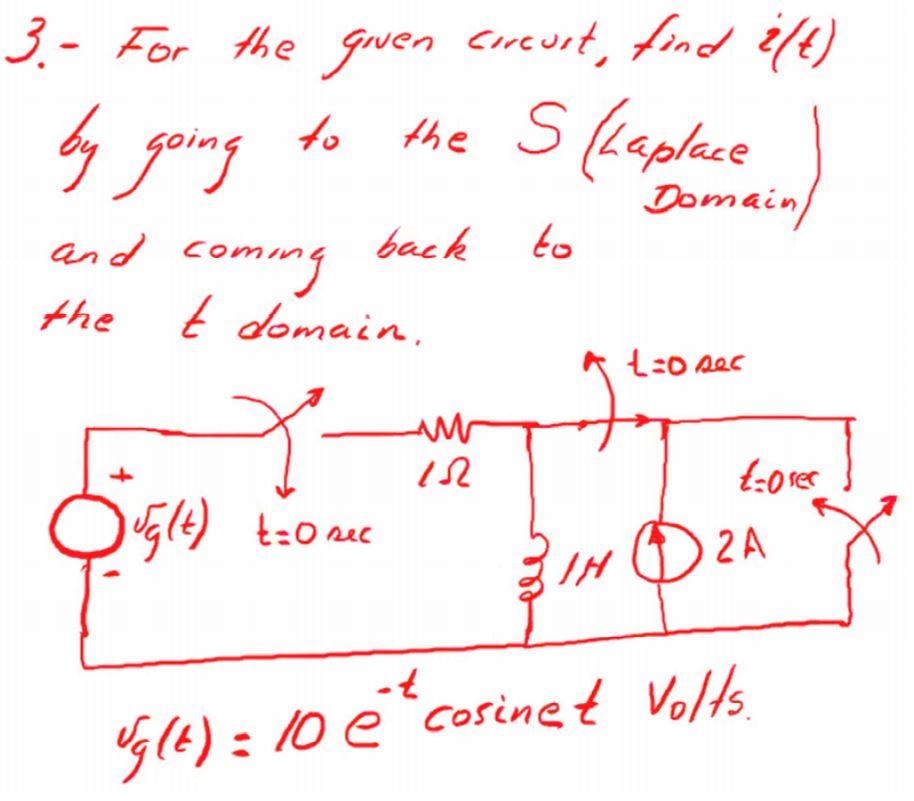 3.- For the given circuit, find i(t)
by going to the S (Laplace
Domain)
and coming back to
the t domain.
t=0 sec
+
1Ω
t=0 sec
vg(t)
t=0 sec
-
1H
2A
vg(t) = 10 e^-t cosine t Volts.